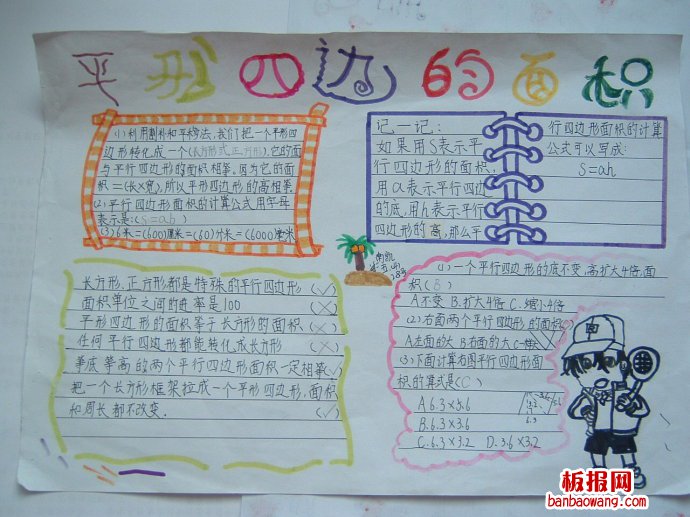 平形四边的面积
(1)利用割补和平移法,我们把一个平形四
边形转化成一个(长方形式正方形),它的面
与平行四边形的面积相等。因为它的面
积=(长×宽),所以平形四边形的高相等.
(2)平行四边形面积的计算公式用字母
表示是:(S=ah)
(3)6米=(600)厘米=(60)分米=(6000)毫米
记一记:
如果用S表示平
行四边形的面积,
用a表示平行四边
的底,用h表示平行
四边形的高,那么平
行四边形面积的计算
公式可以写成:
S=ah
长方形、正方形都是特殊的平行四边形 (√)
面积单位之间的进率是100 (×)
平形四边形的面积等于长方形的面积 (×)
任何平行四边形都能转化成长方形 (√)
等底等高的两个平行四边形面积一定相等(√)
把一个长方形框架拉成一个平形四边形,面积
和周长都不改变. (√)
(1)一个平行四边形的底不变,高扩大4倍,面
积(B)
A不变 B.扩大4倍 C.缩小4倍
(2)右面两个平行四边形的面积
A左面的大 B右面的大 C一样
(3)下面计算右图平行四边形面
积的算式是(C)
A6.3×5.6
B.6.3×3.6
C.6.3×3.2 D.3.6×3.2
6.3
板报网
banbaowang.com